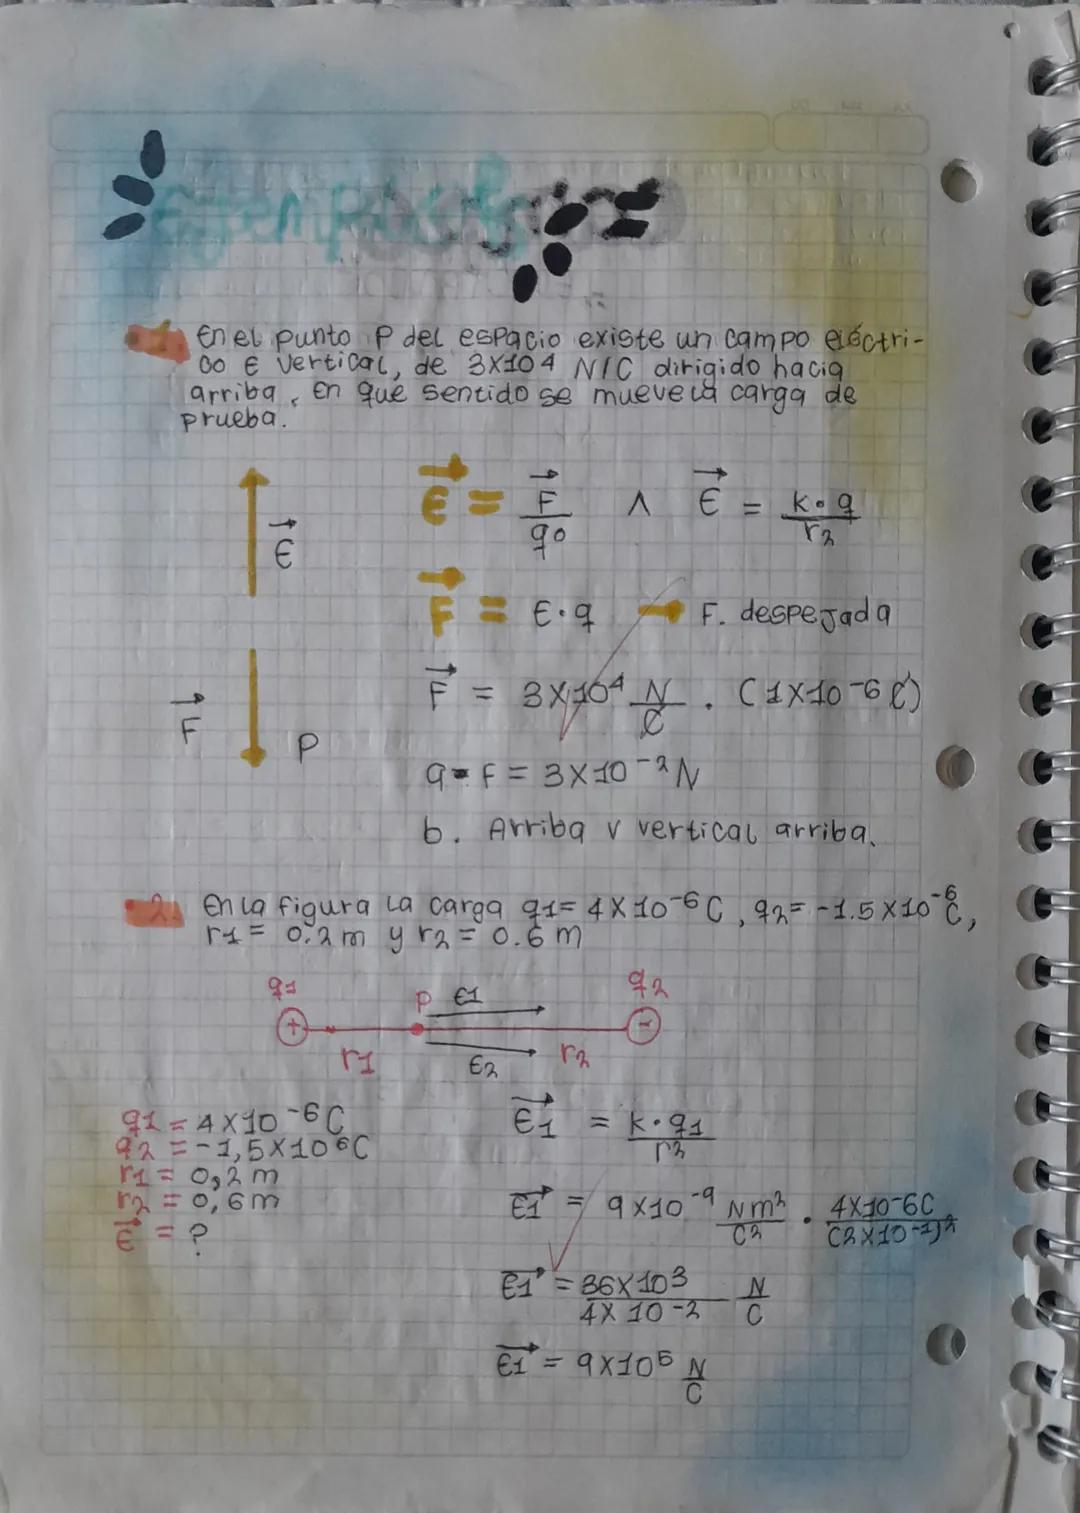 Ejemplos
1. En el punto P del espacio existe un campo eléctri-
co E vertical, de 3x104 N/C dirigido hacia
arriba, En que sentido se mueve la carga de
prueba.
E
F
P
E = F/q0 ∧ E = k·q/r2
F = E·q → F. despejada
F = 3x10⁴ N/C . (1x10-6 C)
a = F = 3x10-2 N
b. Arriba v vertical arriba.
2. En la figura la carga q1= 4x10-6 C, q2= -1.5x10-6 C,
r1= 0.2 m y r2= 0.6 m
q1 P E1 q2
+ -
r1 E2 r2
q1 = 4x10-6 C
q2 = -1,5x106 C
r1 = 0,2 m
r2 = 0,6 m
E = ?
E1 = k·q1/r2
E1 = 9x10-9 Nm2/C2 . 4x10-6C/(2x10-1)2
E1 = 36x103/4x10-2 N/C
E1 = 9x105 N/C